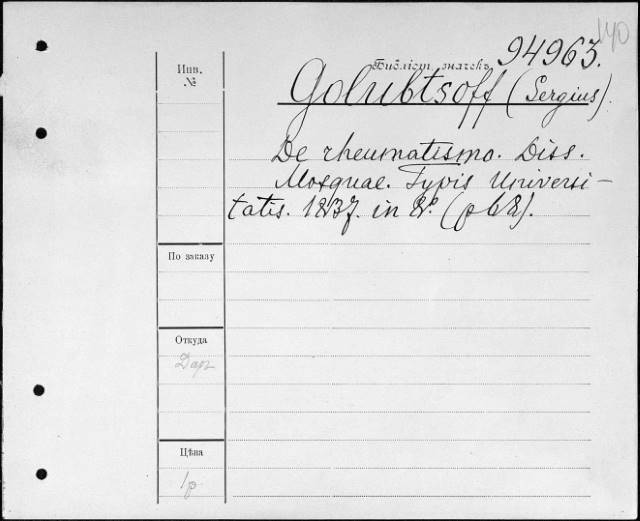 140
Инв.
№
Библіот. значекъ 94963.
Golubtsoff (Sergius).
De rheumatismo. Diss.
Mosquae. Typis Universi-
tatis. 1837. in 8º.
По заказу
Откуда
Дар
Цѣна
1р